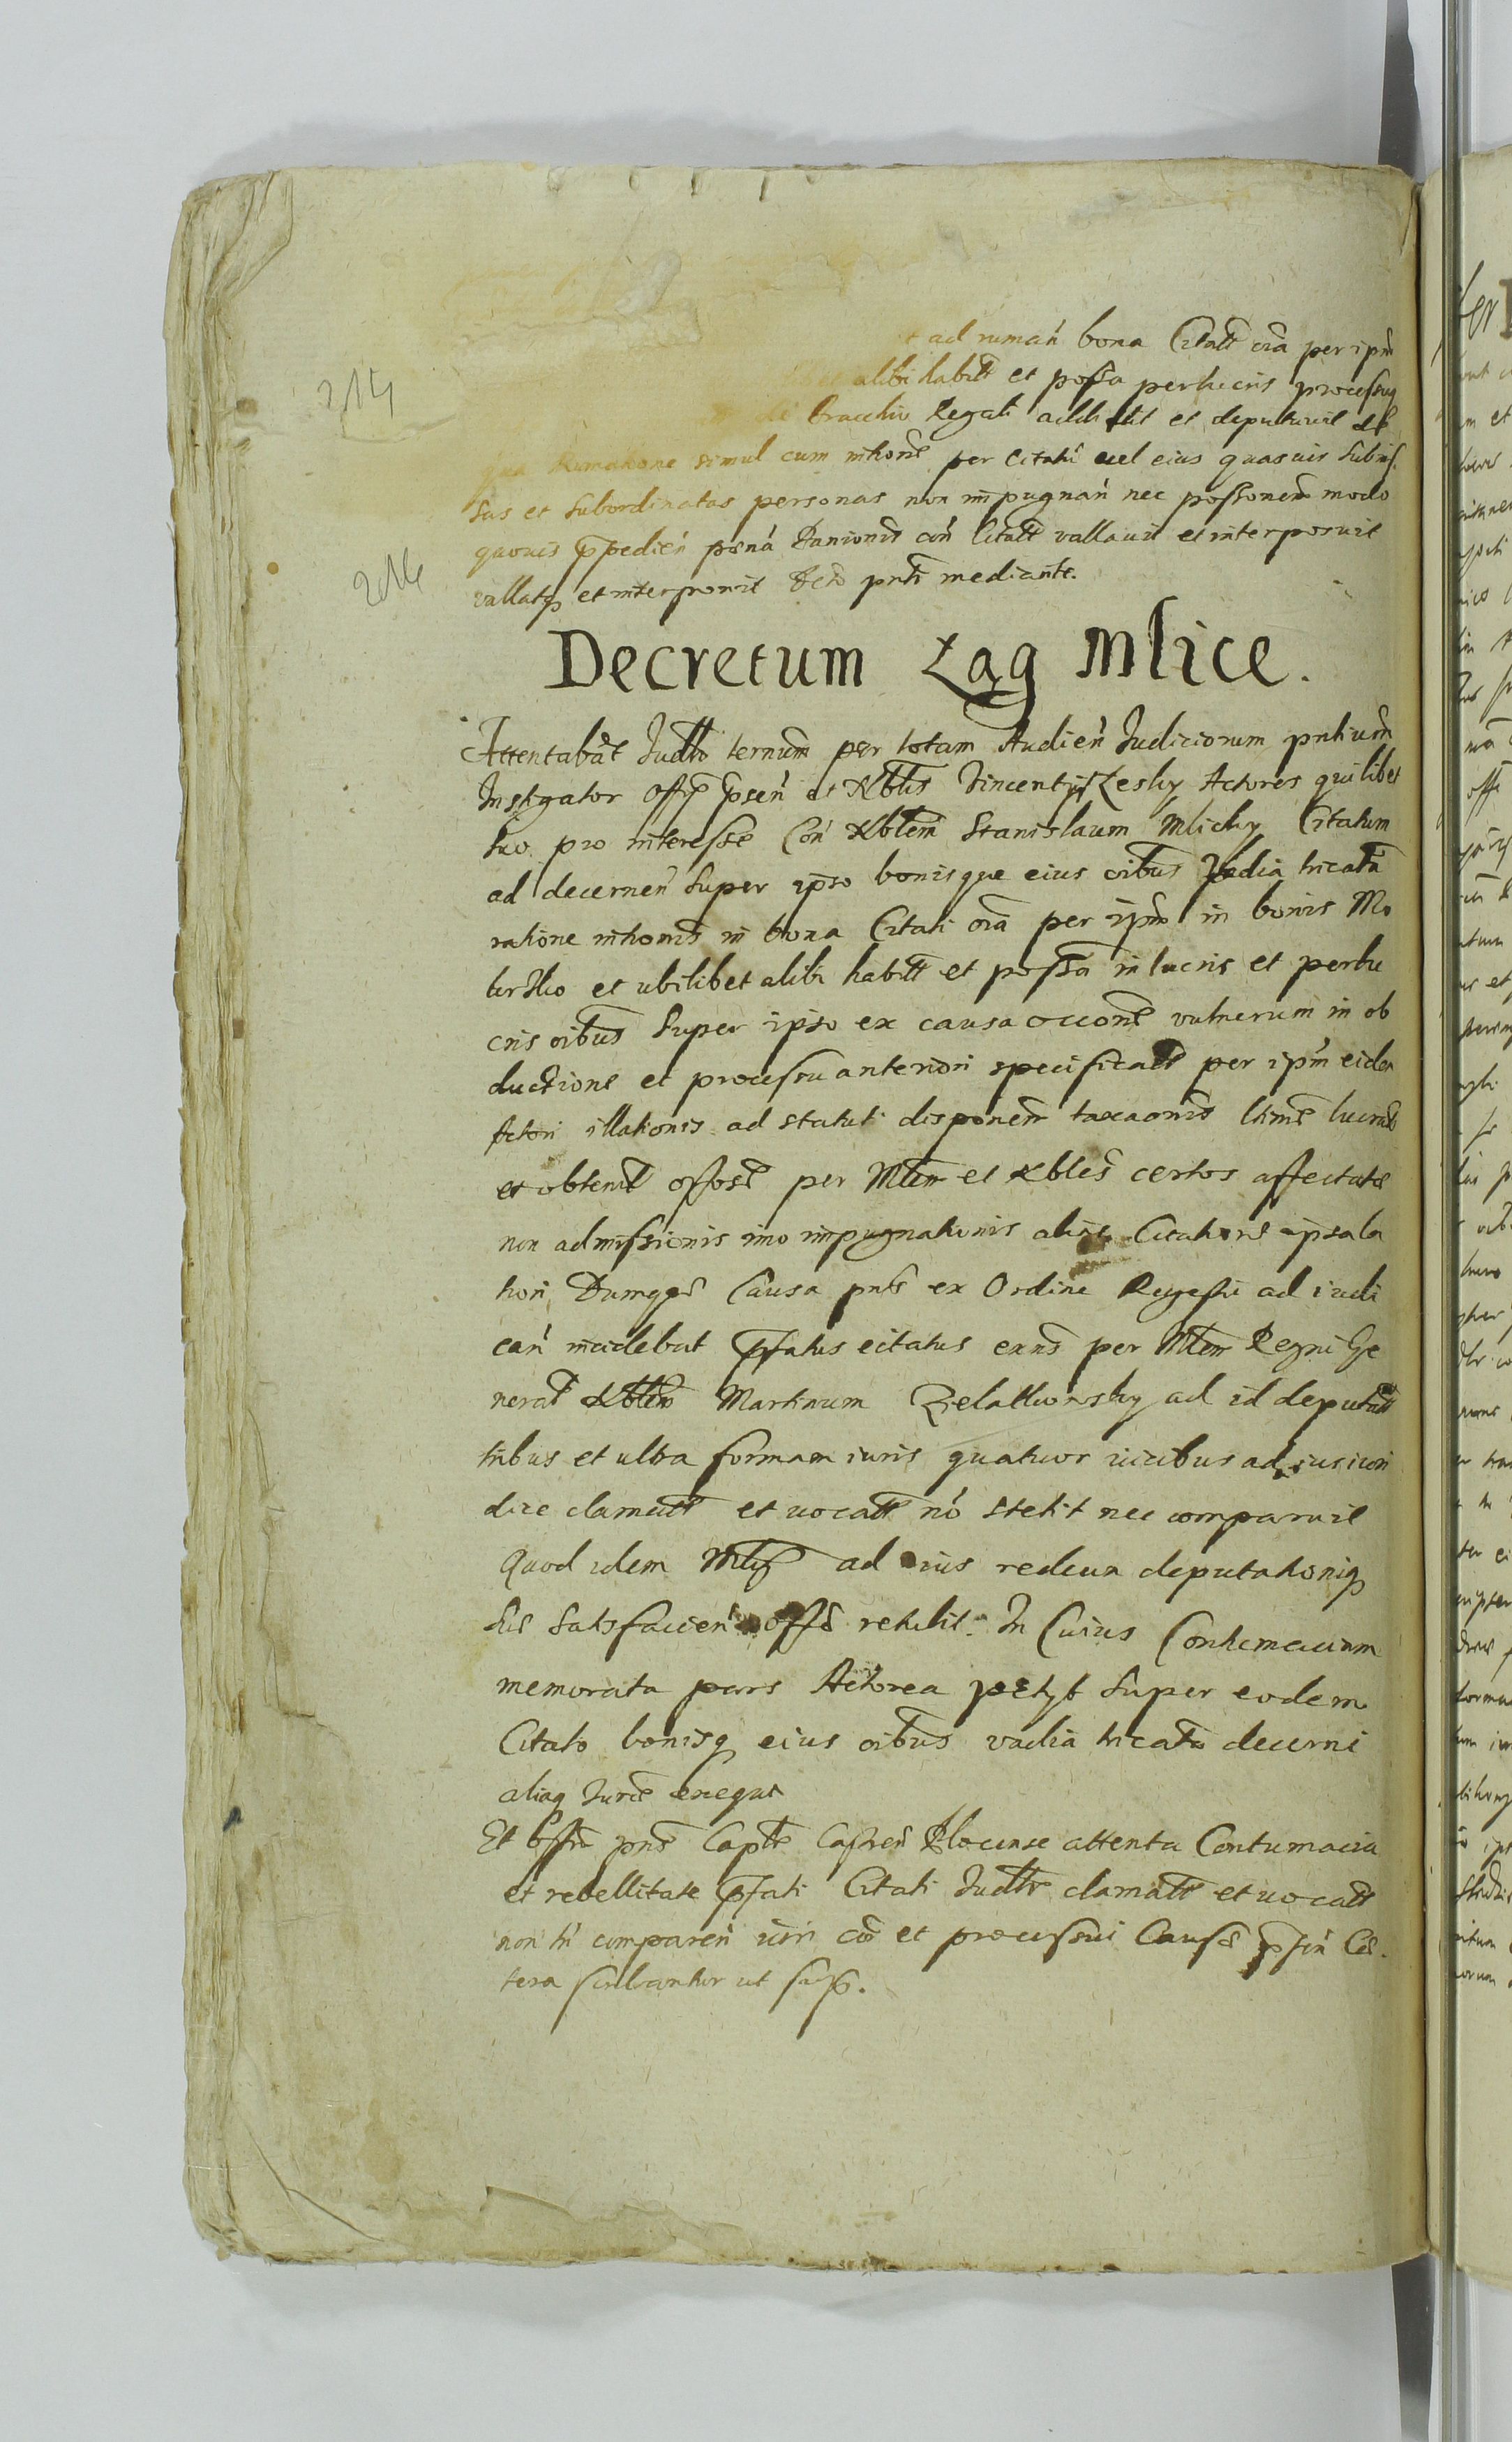 ad ruman bona Citati oia per ipm
alibi habitt et possa perlucris processuq
Bracchio Regali addidit et deputauit de
qua Rumatione simul cum intione per Citatu uel eius quasuis submis
sas et subordinatas personas non impugnan nec possionem modo
quouis ppedien poena Banionis con Citatt vallauit et interposuit
vallatq et interponit Acto pnti mediante.
Decretum Łąg Mlice.
Attentabat Iudtr ternum per totam Audien Iudiciorum pntium
Instigator Offy psen et Nblis Vincentius Łesky Actores quilibet
suo pro interesse Con Nblem Stanislaum Mlicky Citatum
ad decernen super ipso bonisque eius oibus Vadia tricata
ratione intionis in bona Citati oia per ipm in bonis
et ubilibet alibi habitt et possa in lucris et perlu
cris oibus super ipso ex causa occone vulnerum in ob
ductione et processu anteriori specificatt per ipm eidem
Actori illationis ad statuti disponem taxaonis
et obtent offose per Mlem et Nbles certos affectate
non admissionis imo impugnationis alias Citationis ipsa la
tiori Dumqe Causa pns ex Ordine Regestri ad iudi
can incidebat pfatus citatus exns per Mlem Regni Ge
neral Nblem Martinum Zielattkowsky ad id deputatt
tribus et ultra formam iuris quatuor vicibus ad ius iuri
dice clamatt et uocatt no stetit nec comparuit
Quod idem Mlis ad ius rediens deputationiq
sue satisfacien offo retulit. In Cuius Contumaciam
memorata pars Actorea petyt super eodem
Citato bonisq eius oibus vadia tricata decerni
aliaq Iuris exequt
Et Offm pns Capte Castren Plocense attenta Contumacia
et rebellitate pfati Citati Iudtr clamatt et uocatt
non tn comparen et processui Cause pfin Ce
tera scribantur ut sups.
214
214